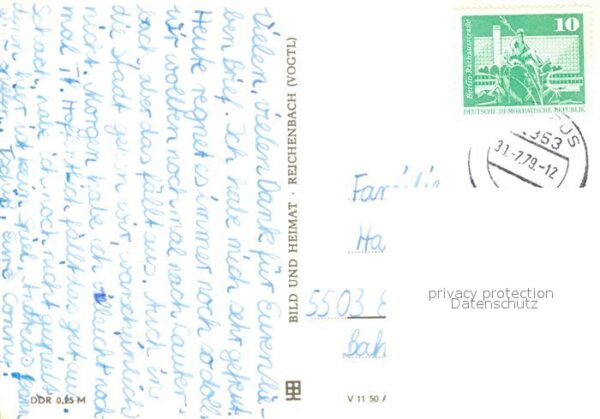 Vielen, vielen Dank für Euren lie-
ben Brief. Ich habe mich sehr gefreut.
Heute regnet es immer noch so doll.
wir wollten noch mal nach Lauter-
bach aber das fällt aus. Auch in
die Stadt gehen wir warscheinlich
nicht. Morgen habe ich vielleicht noch
mal
Schach habe ich noch nicht gespielt
denn hier ist kein Spiel.
Eure Conny
BILD UND HEIMAT · REICHENBACH (VOGTL)
DDR 0,25 M
V 11 50 A
10
Berlin-Rathausstraße
DEUTSCHE DEMOKRATISCHE REPUBLIK
-7.79.-12
Familie
Ha
5503
Bah
privacy protection
Datenschutz